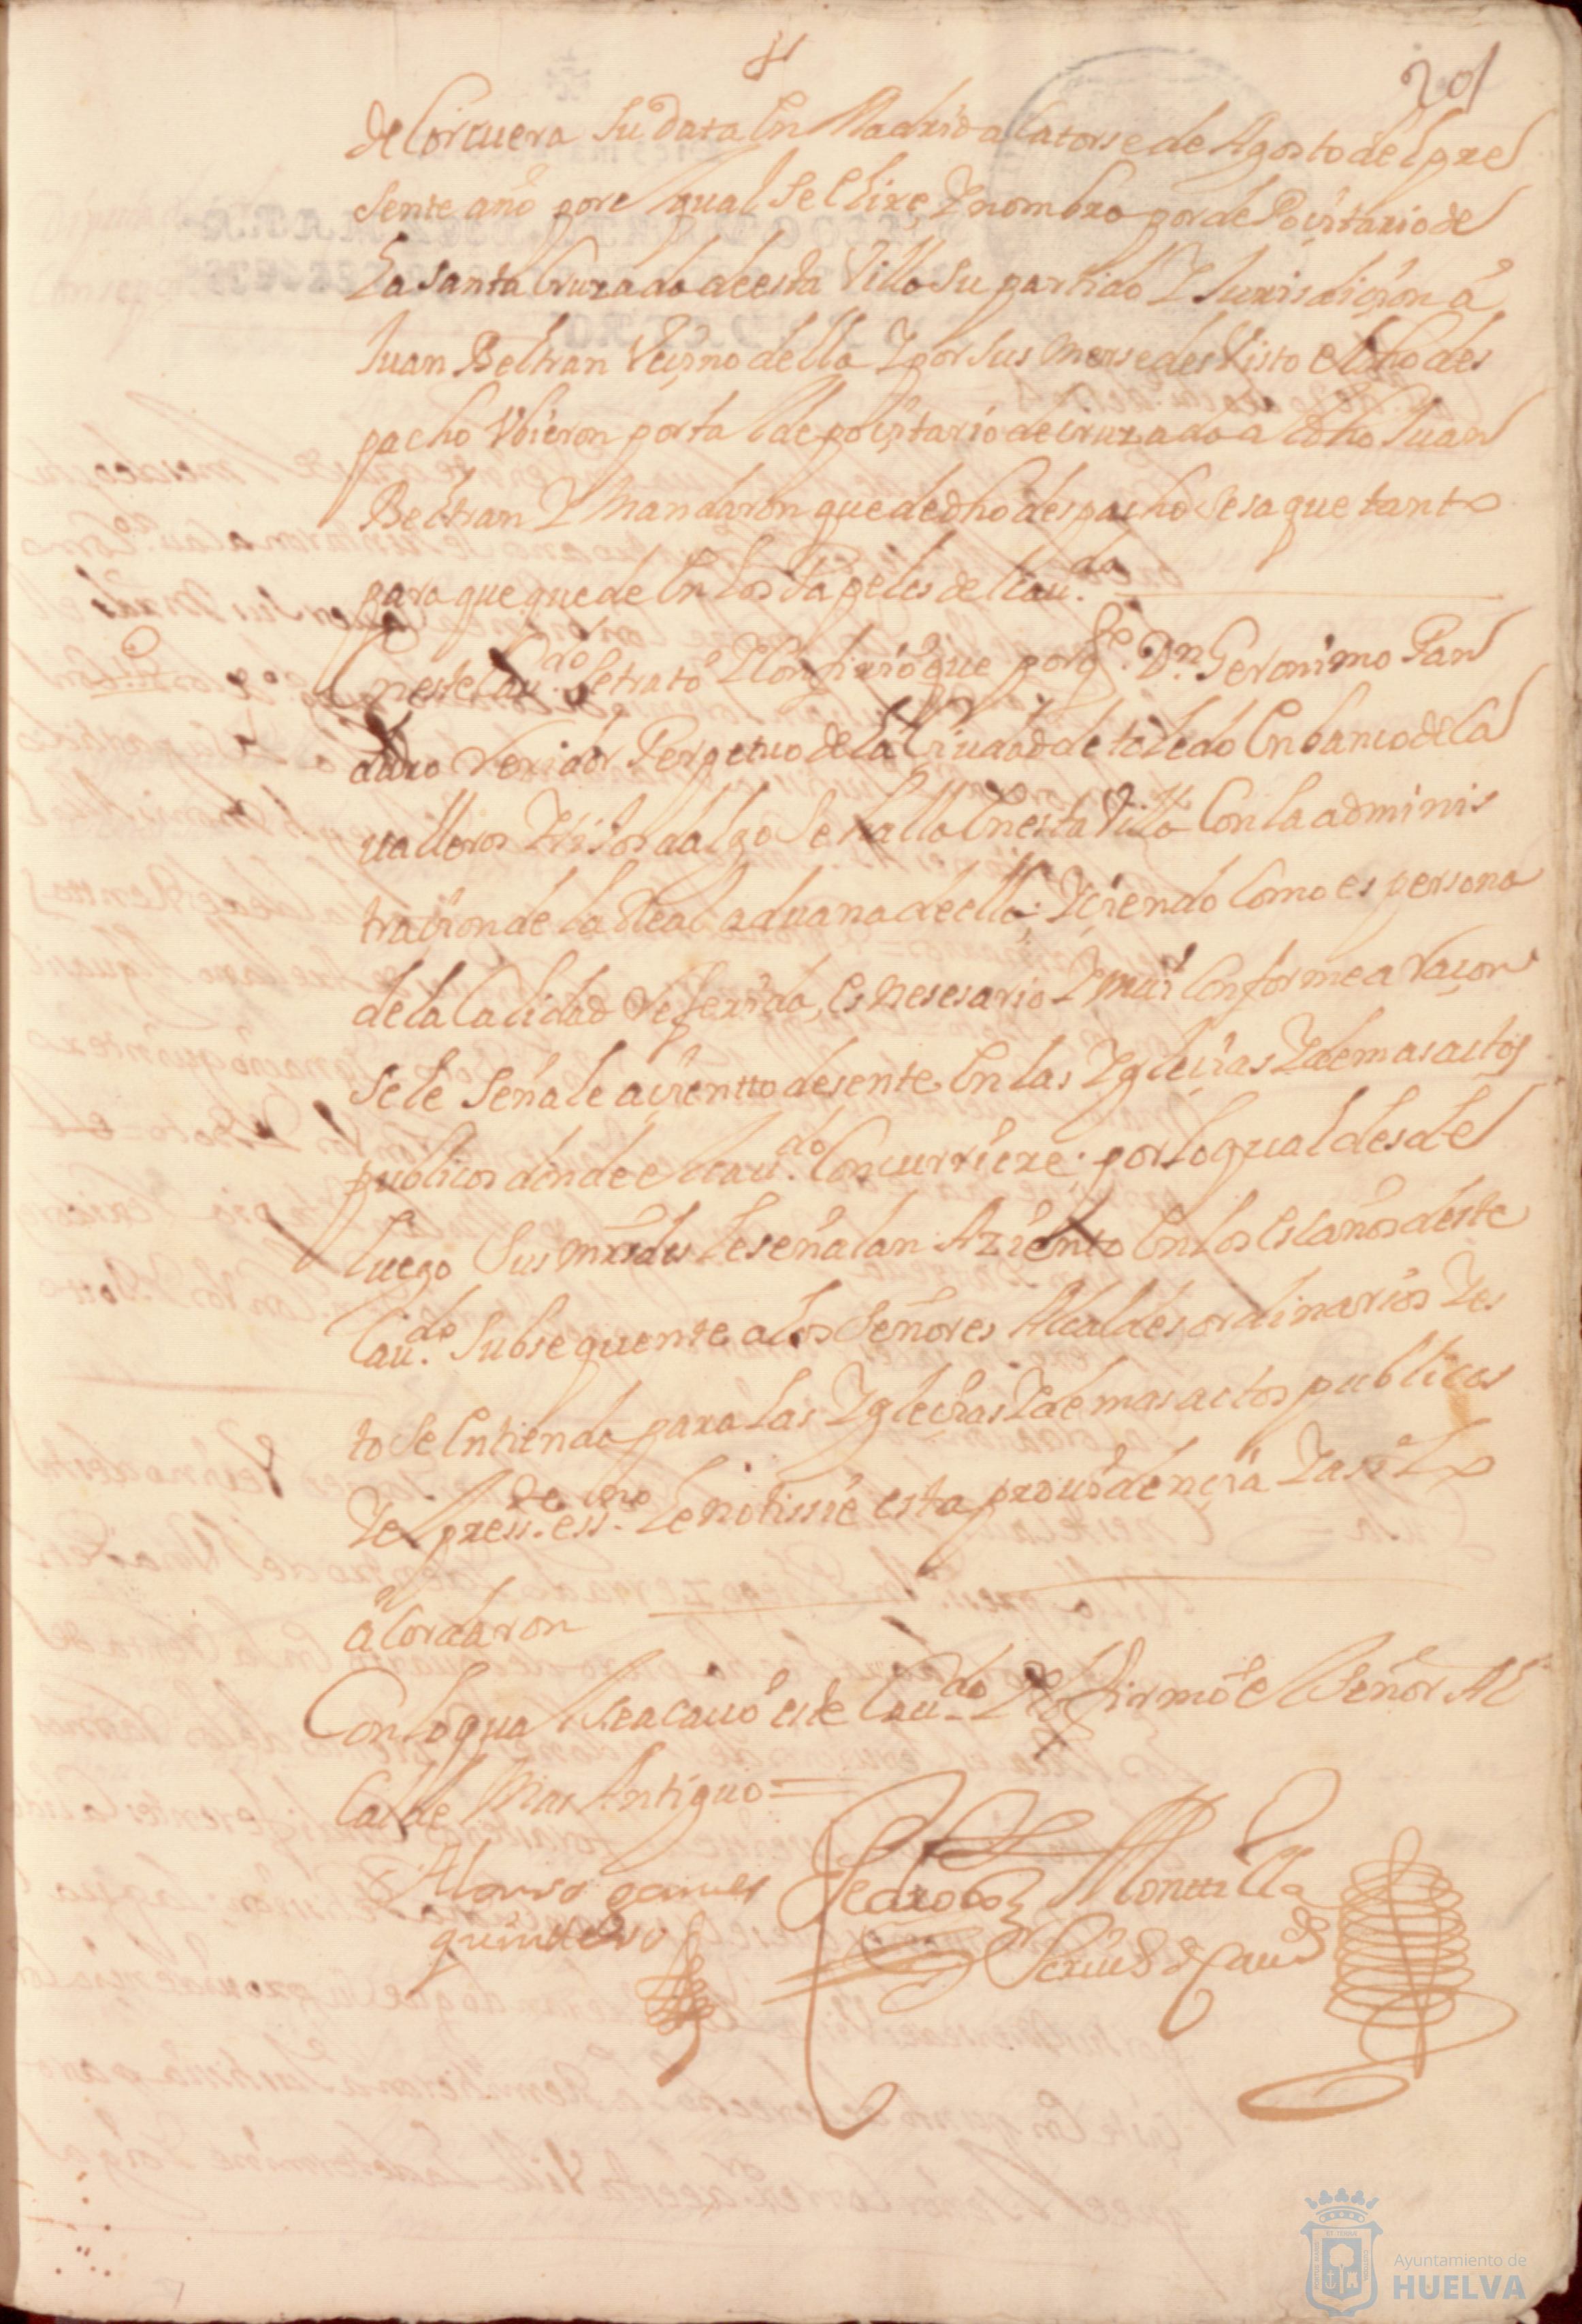 201
de Corcuera su data en Madrid a Catorse de Agosto del pre
sente año por el qual se elixe, Y nombra por depoçitario de
La Santa Cruzada de esta Villa su partido Y Jurisdiçion á
Juan Beltran Veçino della Y por sus mersedes Visto el dho des
pacho Vbieron por tal depoçitario de cruzada a el dho Juan
Beltran Y Mandaron que de dho despacho se saque tanto
para que quede en los Papeles del Cau.do
En este Cau.do se trató Y Confirió que por q.e Dn. Geronimo Pan
duro Rexidor Perpetuo de la Ciudad de toledo en banco de Ca
ualleros Y Hijosdalgo se halla en esta Villa Con la adminis
traçion de la Real aduana de ella; Y çiendo Como es persona
de la Calidad Referida, es nesesario Y mui Conforme a Raçon
se le señale açientto desente en las Ygleçias Y demas actos
publicos donde el Cau.do Concurriere; por lo qual desde
luego Sus mrsdes le señalan Aziento en los escaños deste
Cau.do subsequente a los Señores Alcaldes ordinarios Y es
to se entienda para las Ygleçias Y demas actos publicos
Y el pres.te ess.no le notissie esta prouidençia Y asi lo
acordaron
Con lo qual se acauó este Cau.do Y lo firmó el Señor Al
Calde Mas Antiguo =
Alonso
quintero
Pedro Montilla
Scriu.o de Cau.do
Ayuntamiento de
HUELVA